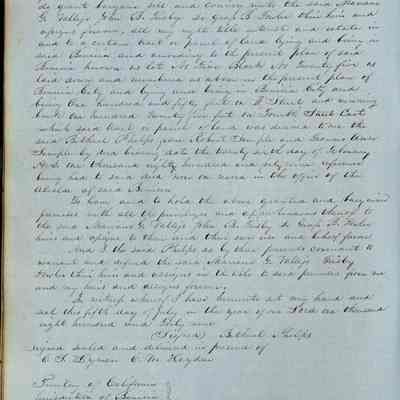 do grant bargain sell and convey unto the said Mariano
G. Vallejo John B. Frisby & Graf B. Fowler their heirs and
assigns forever, all my right title interest and estate in
and to a certain tract or parcel of land lying and being in
said Benicia and according to the present plan of said
Benicia known as lots Four Block No Twenty five as
laid down and numbered as above in the present plan of
Benicia City and lying and being in Benicia City and
being One hundred and fifty feet on Street and running
back one hundred Twenty five feet on Fourth Street East
which said tract or parcel of land was deeded to me the
said Bethuel Phelps from Robert Semple and Frances Ann
Semple by deed bearing date the twenty day of February
A.D. one thousand eighty hundred and reference
being had to said deed now on record in the office of the
Alcalde of said Benicia
To have and to hold the above granted and bargained
premises with all the privileges and appurtenances thereof to
the said Mariano G. Vallejo John B. Frisby & Graf B. Fowler
heirs and assigns to them and their own use and behoof forever
And I the said Phelps as by these presents covenant to
warrant and defend the said Mariano G. Vallejo Frisby
Fowler their heirs and assigns in the title to said premises from me
and my heirs and assigns forever.
In witness whereof I have hereunto set my hand and
seal this fifth day of July in the year of our Lord one thousand
eight hundred and forty nine
(Signed) Bethuel Phelps
signed sealed and delivered in presence of
C. W. Hayden
Territory of California
Jurisdiction of Benicia